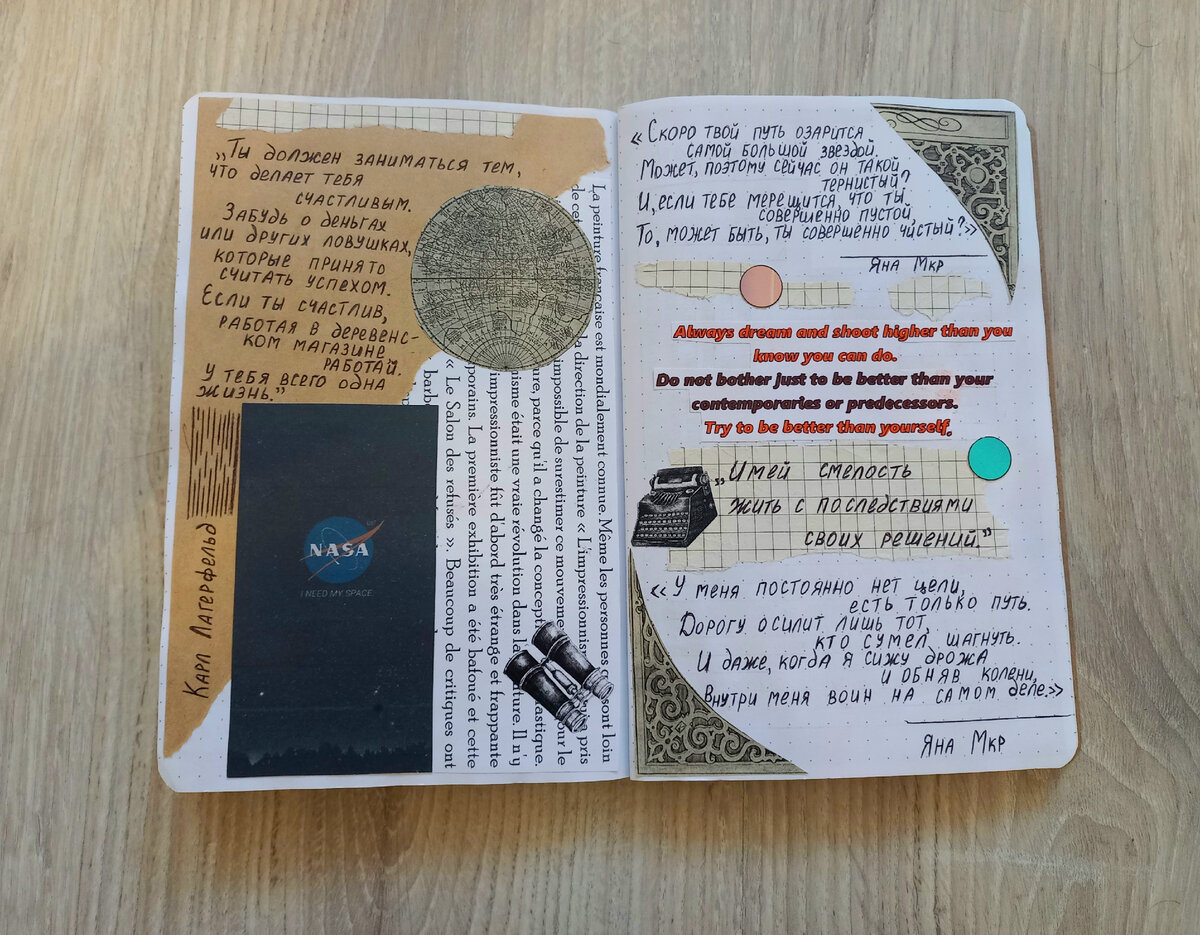 „Ты должен заниматься тем,
что делает тебя
счастливым.
Забудь о деньгах
или других ловушках,
которые принято
считать успехом.
Если ты счастлив,
работая в деревенс-
ком магазине
работай.
У тебя всего одна
жизнь.”
Карл Лагерфельд
NASA
I NEED MY SPACE
La peinture française est mondialement connue. Même les personnes sont loin
de cet la direction de la peinture « L'impressionnis pris
impossible de surestimer ce mouveme our le
ure, parce qu'il a changé la concept astique.
nisme était une vraie révolution dans la ture. Il n'y
impressionniste fût d'abord très étrange et frappante
porains. La première exhibition a été bafoué et cette
« Le Salon des refusés ». Beaucoup de critiques ont
barb
«Скоро твой путь озарится
самой большой звездой.
Может, поэтому сейчас он такой
тернистый?
И, если тебе мерещится, что ты
совершенно пустой,
То, может быть, ты совершенно чистый?»
Яна Мкр
Always dream and shoot higher than you
know you can do.
Do not bother just to be better than your
contemporaries or predecessors.
Try to be better than yourself.
„Имей смелость
жить с последствиями
своих решений.”
«У меня постоянно нет цели,
есть только путь.
Дорогу осилит лишь тот,
кто сумел шагнуть.
И даже, когда я сижу дрожа
и обняв колени,
Внутри меня воин на самом деле.»
Яна Мкр